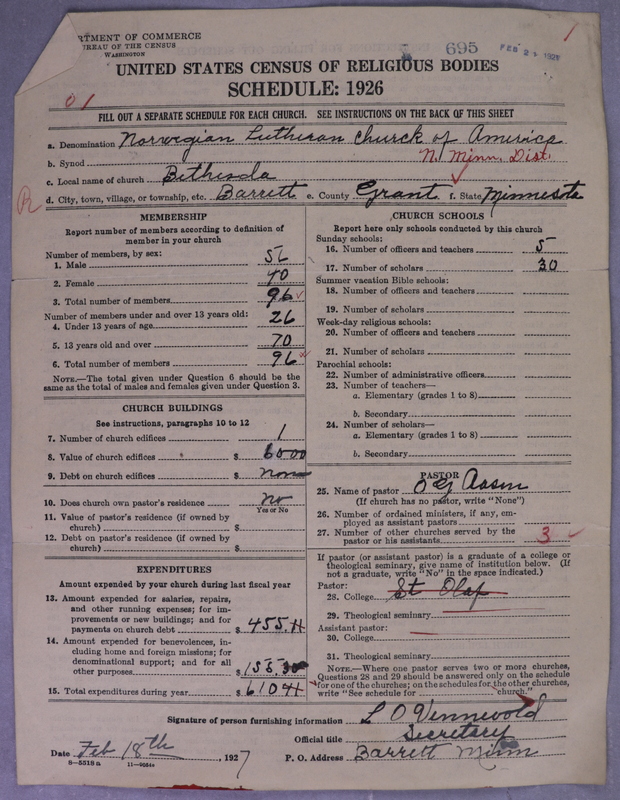 RTMENT OF COMMERCE
BUREAU OF THE CENSUS
WASHINGTON
695
FEB 21 1927
1
UNITED STATES CENSUS OF RELIGIOUS BODIES
SCHEDULE: 1926
01
FILL OUT A SEPARATE SCHEDULE FOR EACH CHURCH. SEE INSTRUCTIONS ON THE BACK OF THIS SHEET
a. Denomination Norwegian Lutheran Church of America
b. Synod N. Minn. Dist.
c. Local name of church Bethesda
R
d. City, town, village, or township, etc. Barrett e. County Grant f. State Minnesota
MEMBERSHIP
Report number of members according to definition of
member in your church
Number of members, by sex:
1. Male 56
2. Female 40
3. Total number of members 96
Number of members under and over 13 years old:
4. Under 13 years of age 26
5. 13 years old and over 70
6. Total number of members 96
NOTE.—The total given under Question 6 should be the
same as the total of males and females given under Question 3.
CHURCH BUILDINGS
See instructions, paragraphs 10 to 12
7. Number of church edifices 1
8. Value of church edifices $ 6000
9. Debt on church edifices $ none
10. Does church own pastor's residence No
Yes or No
11. Value of pastor's residence (if owned by
church) $
12. Debt on pastor's residence (if owned by
church) $
EXPENDITURES
Amount expended by your church during last fiscal year
13. Amount expended for salaries, repairs,
and other running expenses; for im-
provements or new buildings; and for
payments on church debt $ 455.11
14. Amount expended for benevolences, in-
cluding home and foreign missions; for
denominational support; and for all
other purposes $ 155.30
15. Total expenditures during year $ 610 41
CHURCH SCHOOLS
Report here only schools conducted by this church
Sunday schools:
16. Number of officers and teachers 5
17. Number of scholars 30
Summer vacation Bible schools:
18. Number of officers and teachers
19. Number of scholars
Week-day religious schools:
20. Number of officers and teachers
21. Number of scholars
Parochial schools:
22. Number of administrative officers
23. Number of teachers—
a. Elementary (grades 1 to 8)
b. Secondary
24. Number of scholars—
a. Elementary (grades 1 to 8)
b. Secondary
PASTOR
25. Name of pastor O G Aasen
(If church has no pastor, write "None")
26. Number of ordained ministers, if any, em-
ployed as assistant pastors
27. Number of other churches served by the
pastor or his assistants 3
If pastor (or assistant pastor) is a graduate of a college or
theological seminary, give name of institution below. (If
not a graduate, write "No" in the space indicated.)
Pastor:
28. College St Olaf
29. Theological seminary
Assistant pastor:
30. College
31. Theological seminary
NOTE.—Where one pastor serves two or more churches,
Questions 28 and 29 should be answered only on the schedule
for one of the churches; on the schedules for the other churches,
write "See schedule for church."
Signature of person furnishing information L O Vennewold
Official title Secretary
Date Feb 18th, 1927 P. O. Address Barrett Minn
8—5518 a